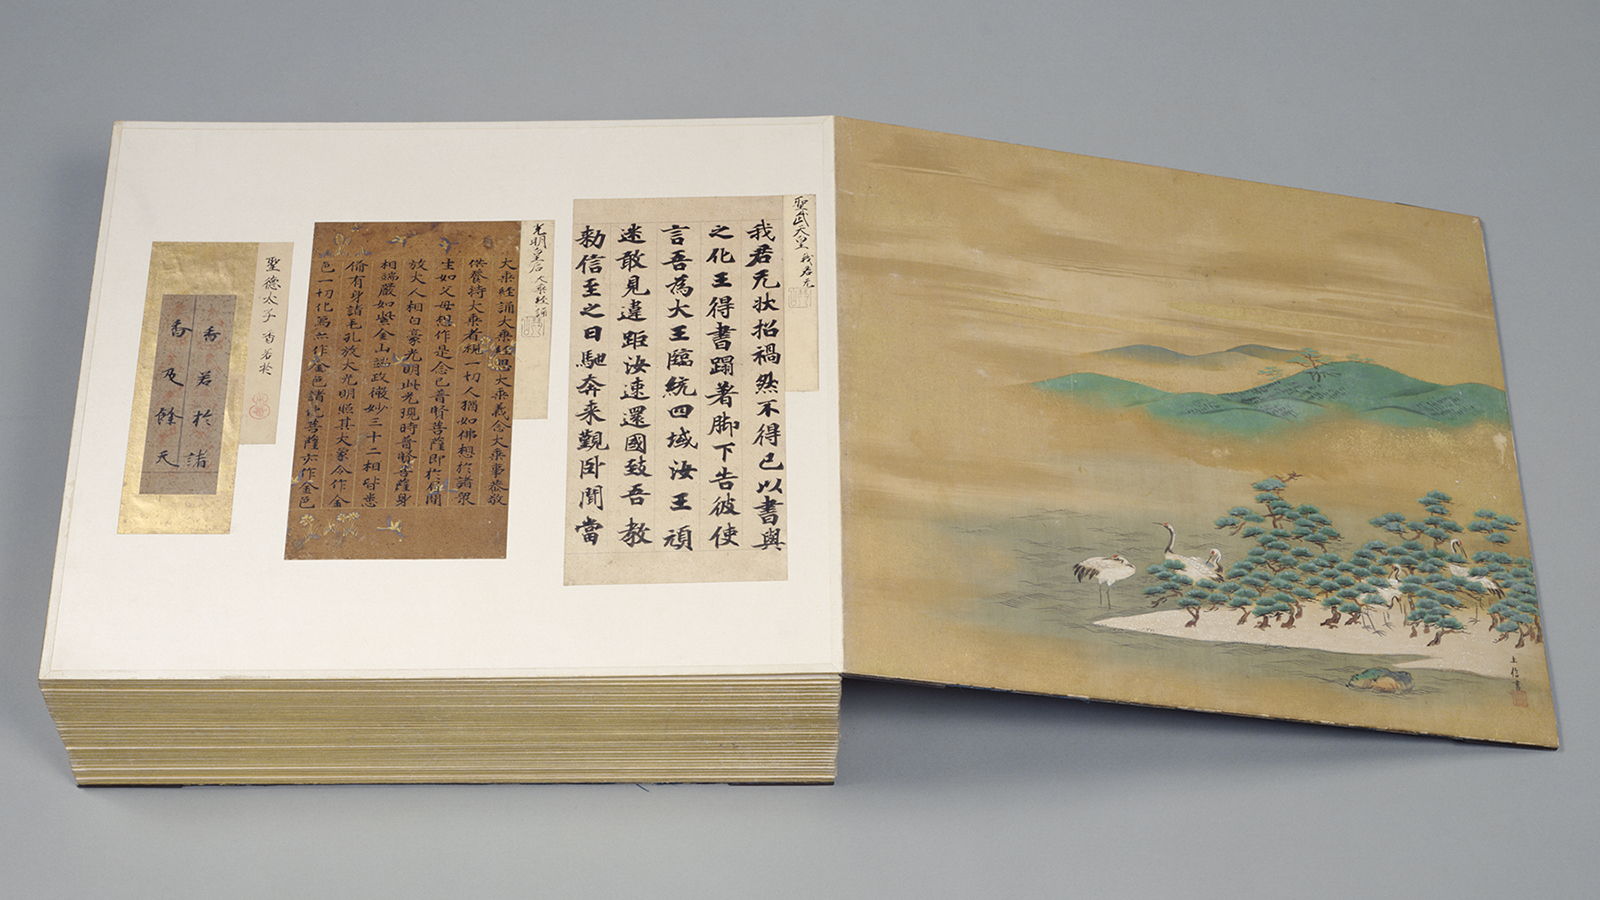 聖武天皇 我君无
我君无狀招禍然不得已以書與
之化王得書蹋著脚下告彼使
言吾為大王臨統四域汝王頑
迷敢見違距汝速還國致吾教
勅信至之日馳奔来覲卧聞當
光明皇后 大乗経誦
大乗経誦大乗経思大乗義念大乗事恭敬
供養持大乗者視一切人猶如佛想於諸衆
生如父母想作是念已普賢菩薩即於眉間
放大人相白豪光明此光現時普賢菩薩身
相端嚴如紫金山端政微妙三十二相皆悉
備有身諸毛孔放大光明照其大象令作金
色一切化象亦作金色諸化菩薩亦作金色
聖德太子 香若於
香若於諸
香及餘天